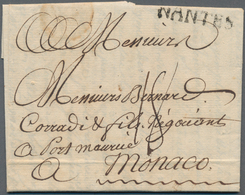 NANTES
Messieurs
Messieurs Bernard
Corradi & fils Négociant
a Port maurice
A Monaco.